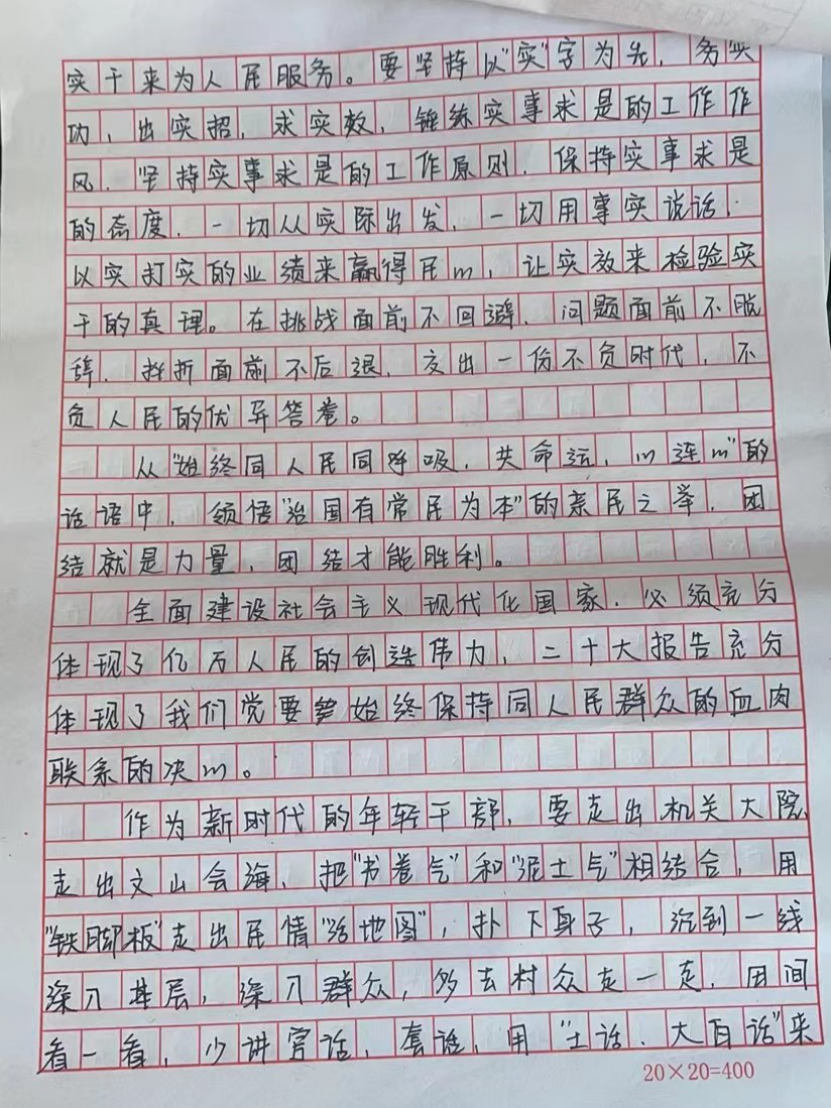 实干来为人民服务。要坚持以“实”字为先，务实
功、出实招、求实效，锤练实事求是的工作作
风，坚持实事求是的工作原则，保持实事求是
的态度，一切从实际出发，一切用事实说话，
以实打实的业绩来赢得民心，让实效来检验实
干的真理。在挑战面前不回避，问题面前不脱
辞，挫折面前不后退，交出一份不负时代，不
负人民的优异答卷。
从“始终同人民同呼吸，共命运，心连心”的
话语中，领悟“治国有常民为本”的亲民之举，团
结就是力量，团结才能胜利。
全面建设社会主义现代化国家，必须充分
体现了亿万人民的创造伟力，二十大报告充分
体现了我们党要始终保持同人民群众的血肉
联系的决心。
作为新时代的年轻干部，要走出机关大院，
走出文山会海，把“书卷气”和“泥土气”相结合，用
“铁脚板”走出民情“活地图”，扑下身子，沉到一线
深入基层，深入群众，多去村众走一走，田间
看一看，少讲官话，套话，用“土话、大白话”来
20×20=400